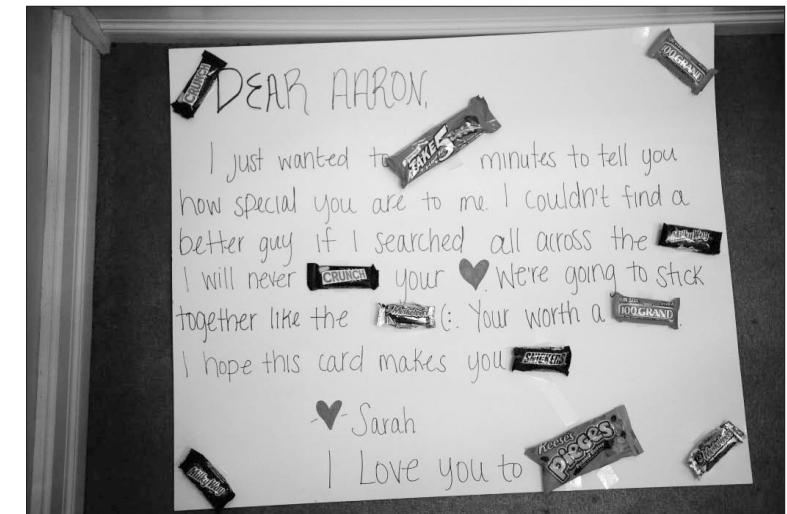 CRUNCH
100 GRAND
DEAR AARON,
I just wanted to TAKE 5 minutes to tell you
how special you are to me. I couldn't find a
better guy if I searched all across the Milky Way
I will never CRUNCH your ♥. We're going to stick
together like the 3 Musketeers (:. Your worth a 100 GRAND.
I hope this card makes you SNICKERS
♥ Sarah
I Love you to Reese's PIECES
Milky Way
3 Musketeers